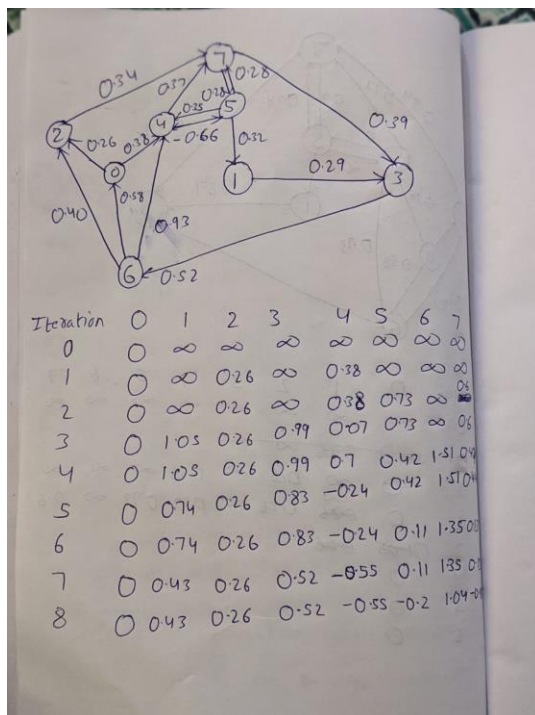 7
0.34
0.37
0.28
0.28
5
0.35
4
2
0.26
0.38
-0.66
0.32
0.39
0
0.29
1
3
0.58
0.40
0.93
6
0.52
Iteration 0 1 2 3 4 5 6 7
0 0 ∞ ∞ ∞ ∞ ∞ ∞ ∞
1 0 ∞ 0.26 ∞ 0.38 ∞ ∞ ∞
2 0 ∞ 0.26 ∞ 0.38 0.73 ∞ 0.6
3 0 1.05 0.26 0.99 0.07 0.73 ∞ 0.6
4 0 1.05 0.26 0.99 0.7 0.42 1.51
5 0 0.74 0.26 0.83 -0.24 0.42 1.51
6 0 0.74 0.26 0.83 -0.24 0.11 1.35
7 0 0.43 0.26 0.52 -0.55 0.11 1.35
8 0 0.43 0.26 0.52 -0.55 -0.2 1.04